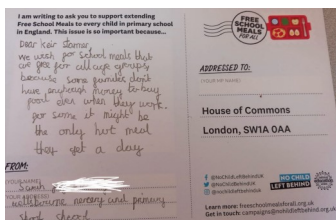 I am writing to ask you to support extending
Free School Meals to every child in primary school
in England. This issue is so important because...
Dear Keir Starmer,
we wish for school meals that
are free for all age groups
because some families don't
have enough money to buy
food even when they work
for some it might be
the only hot meal
they get a day
FROM:
(YOUR NAME)
Sarah
(YOUR ADDRESS)
nursery and primary
school
FREE
SCHOOL
MEALS
FOR ALL
ADDRESSED TO:
(YOUR MP NAME)
House of Commons
London, SW1A 0AA
@NoChildLeftBehindUK
@NoChildBehindUK
@NoChildLeftBehindUK
NO CHILD
LEFT BEHIND
Learn more: freeschoolmealsforall.org.uk
Get in touch: campaigns@nochildleftbehind.org.uk